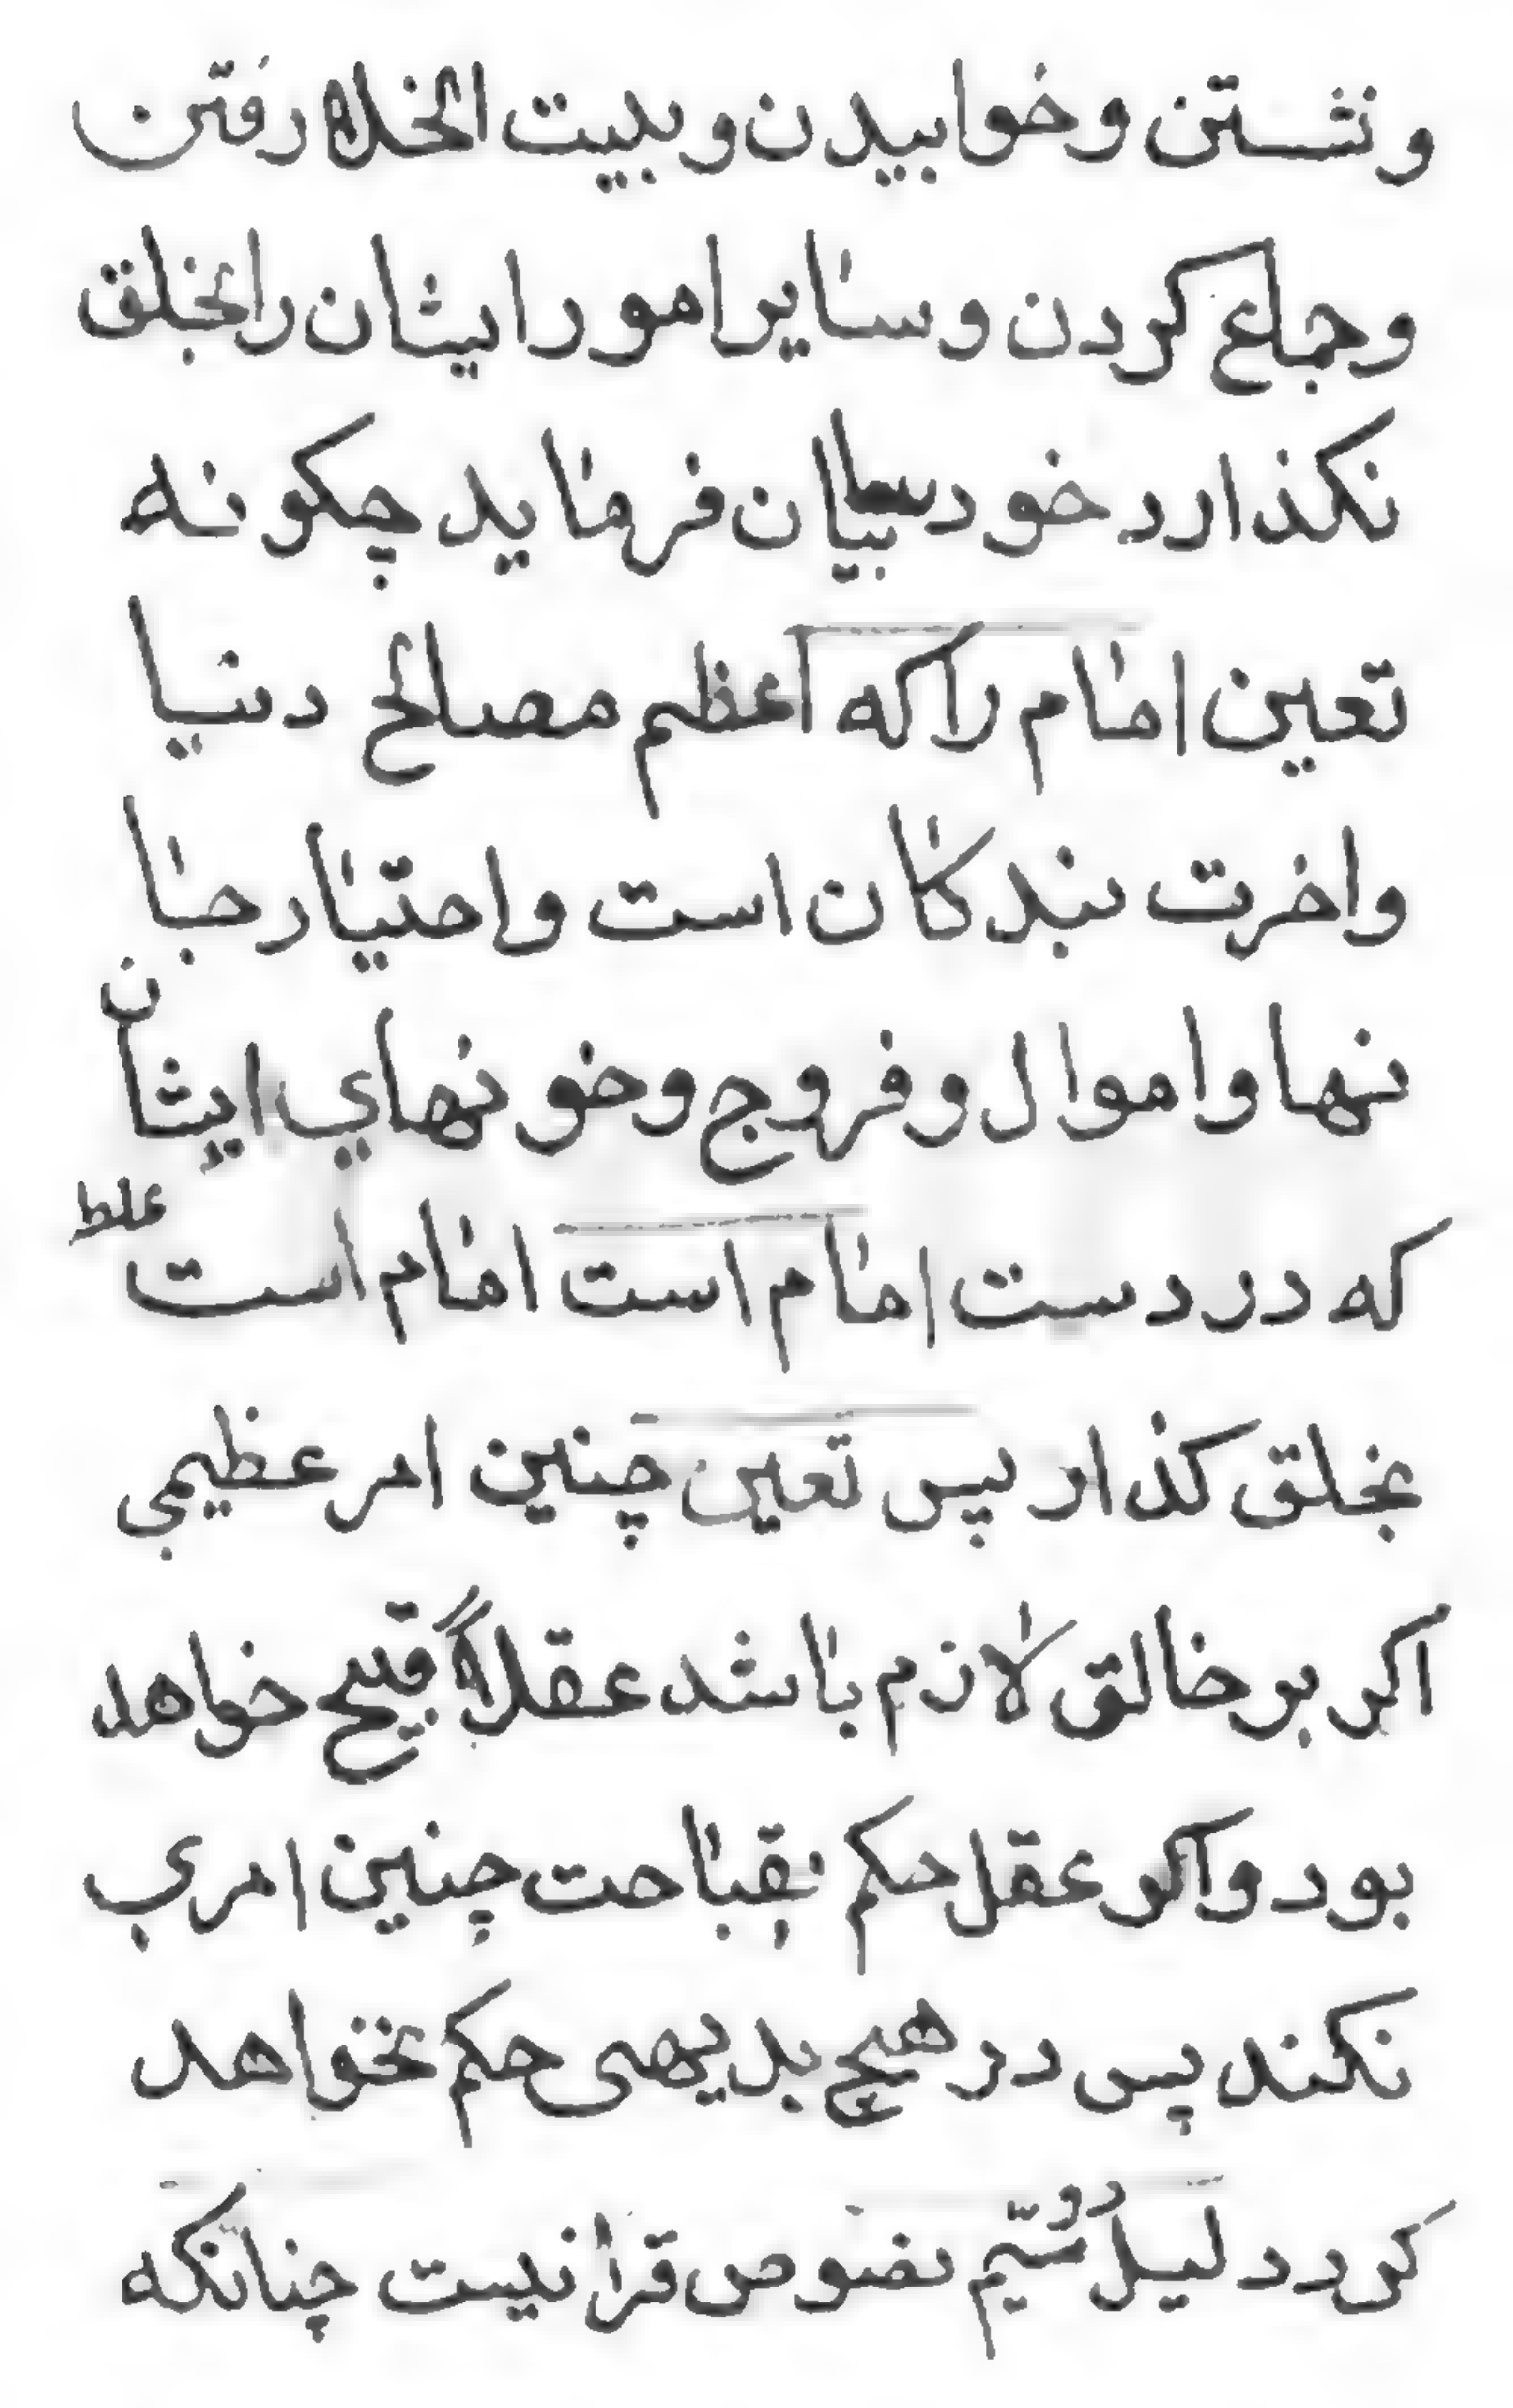 و نشستن و خوابیدن و ببیت الخلاء رفتن
و جماع کردن و سایر امور ایشان را بخلق
نکذارد خود بیان فرماید چکونه
تعین امام را که اعظم مصالح دنیا
و اخرت بندکان است و اختیار جا
نها و اموال و فروج و خونهای ایشان
که در دست امام است امام است غلط
بخلق کذارد پس تعین چنین امر عظیمی
اکر بر خالق لازم باشد عقلاً قبیح خواهد
بود و اکر عقل حکم بقباحت چنین امری
نکند پس در هیچ بدیهی حکم نخواهد
کرد دلیل دویّم نصوص قرانیست چنانکه